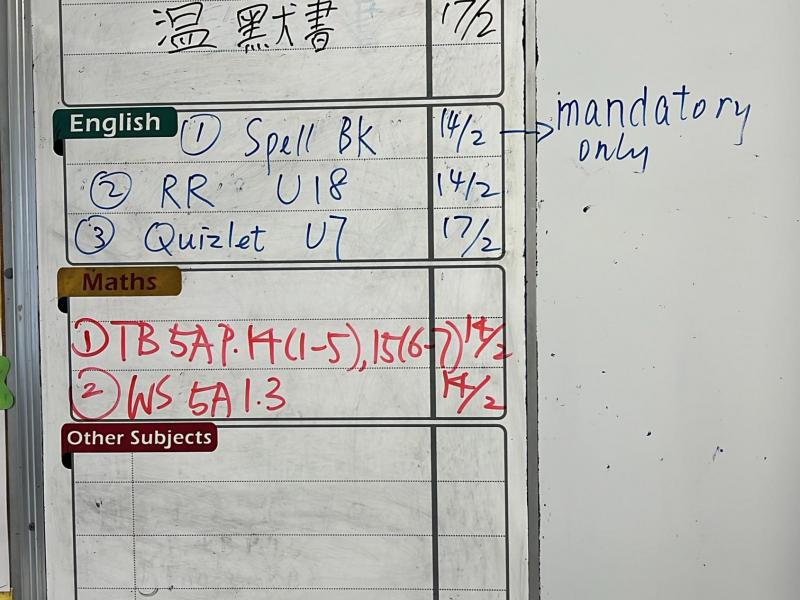 温 默書 17/2
English
① Spell BK 14/2 → mandatory only
② RR U18 14/2
③ Quizlet U7 17/2
Maths
① TB 5A P.14(1-5), 15(6-7) 14/2
② WS 5A 1.3 14/2
Other Subjects